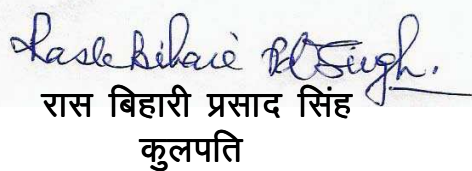 Rash Bihari Pd Singh.
रास बिहारी प्रसाद सिंह
कुलपति